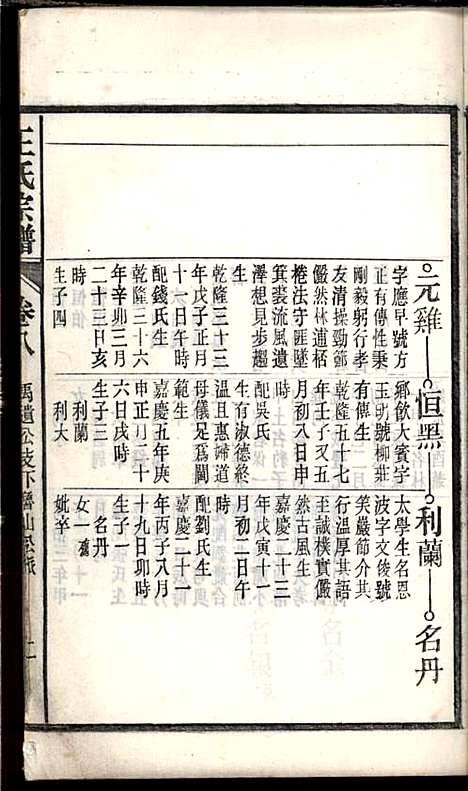 元雞 恒黑 利蘭 名丹
字應早號方
正有傳性秉
剛毅躬行孝
友清操勁節
儼然林逋栖
棬法守匪墜
箕裘流風遺
澤想見步趨
生
乾隆三十三
年戊子正月
十六日午時
配錢氏生
乾隆三十六
年辛卯三月
二十三日亥
時
生子四
鄉飲大賓字
玉明號柳莊
有傳生
乾隆五十七
年壬子又五
月初八日申
時
配吳氏
生有淑德終
溫且惠婦道
母儀足爲閫
範生
嘉慶五年庚
申正月二十
六日戌時
生子三
利蘭
利大
太學生名恩
波字文後號
笑嚴節分其
行溫厚其語
至誠樸實儼
然古風生
嘉慶二十三
年戊寅十一
月初二日午
時
配劉氏生
嘉慶二十一
年丙子八月
十九日卯時
生子一
名丹
女一
妣卒
王氏宗譜
卷八
禹遺公支下魯山公派
二